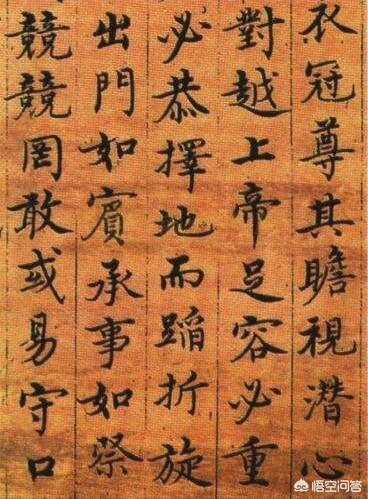 衣冠尊其瞻視潜心
對越上帝足容必重
必恭擇地而蹈折旋
出門如賓承事如祭
競競罔敢或易守口
悟空问答